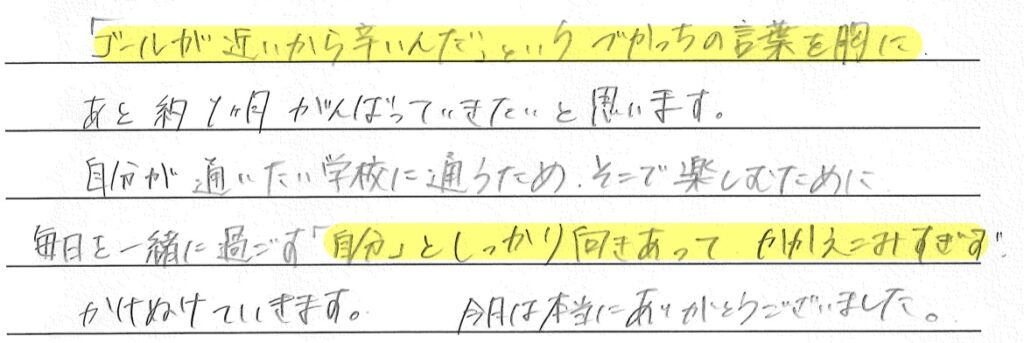 「ゴールが近いから辛いんだ」というづかっちの言葉を胸に
あと約1ヶ月がんばっていきたいと思います。
自分が通いたい学校に通うため、そこで楽しむために
毎日を一緒に過ごす「自分」としっかり向きあって かかえこみすぎず
かけぬけていきます。 今月は本当にありがとうございました。